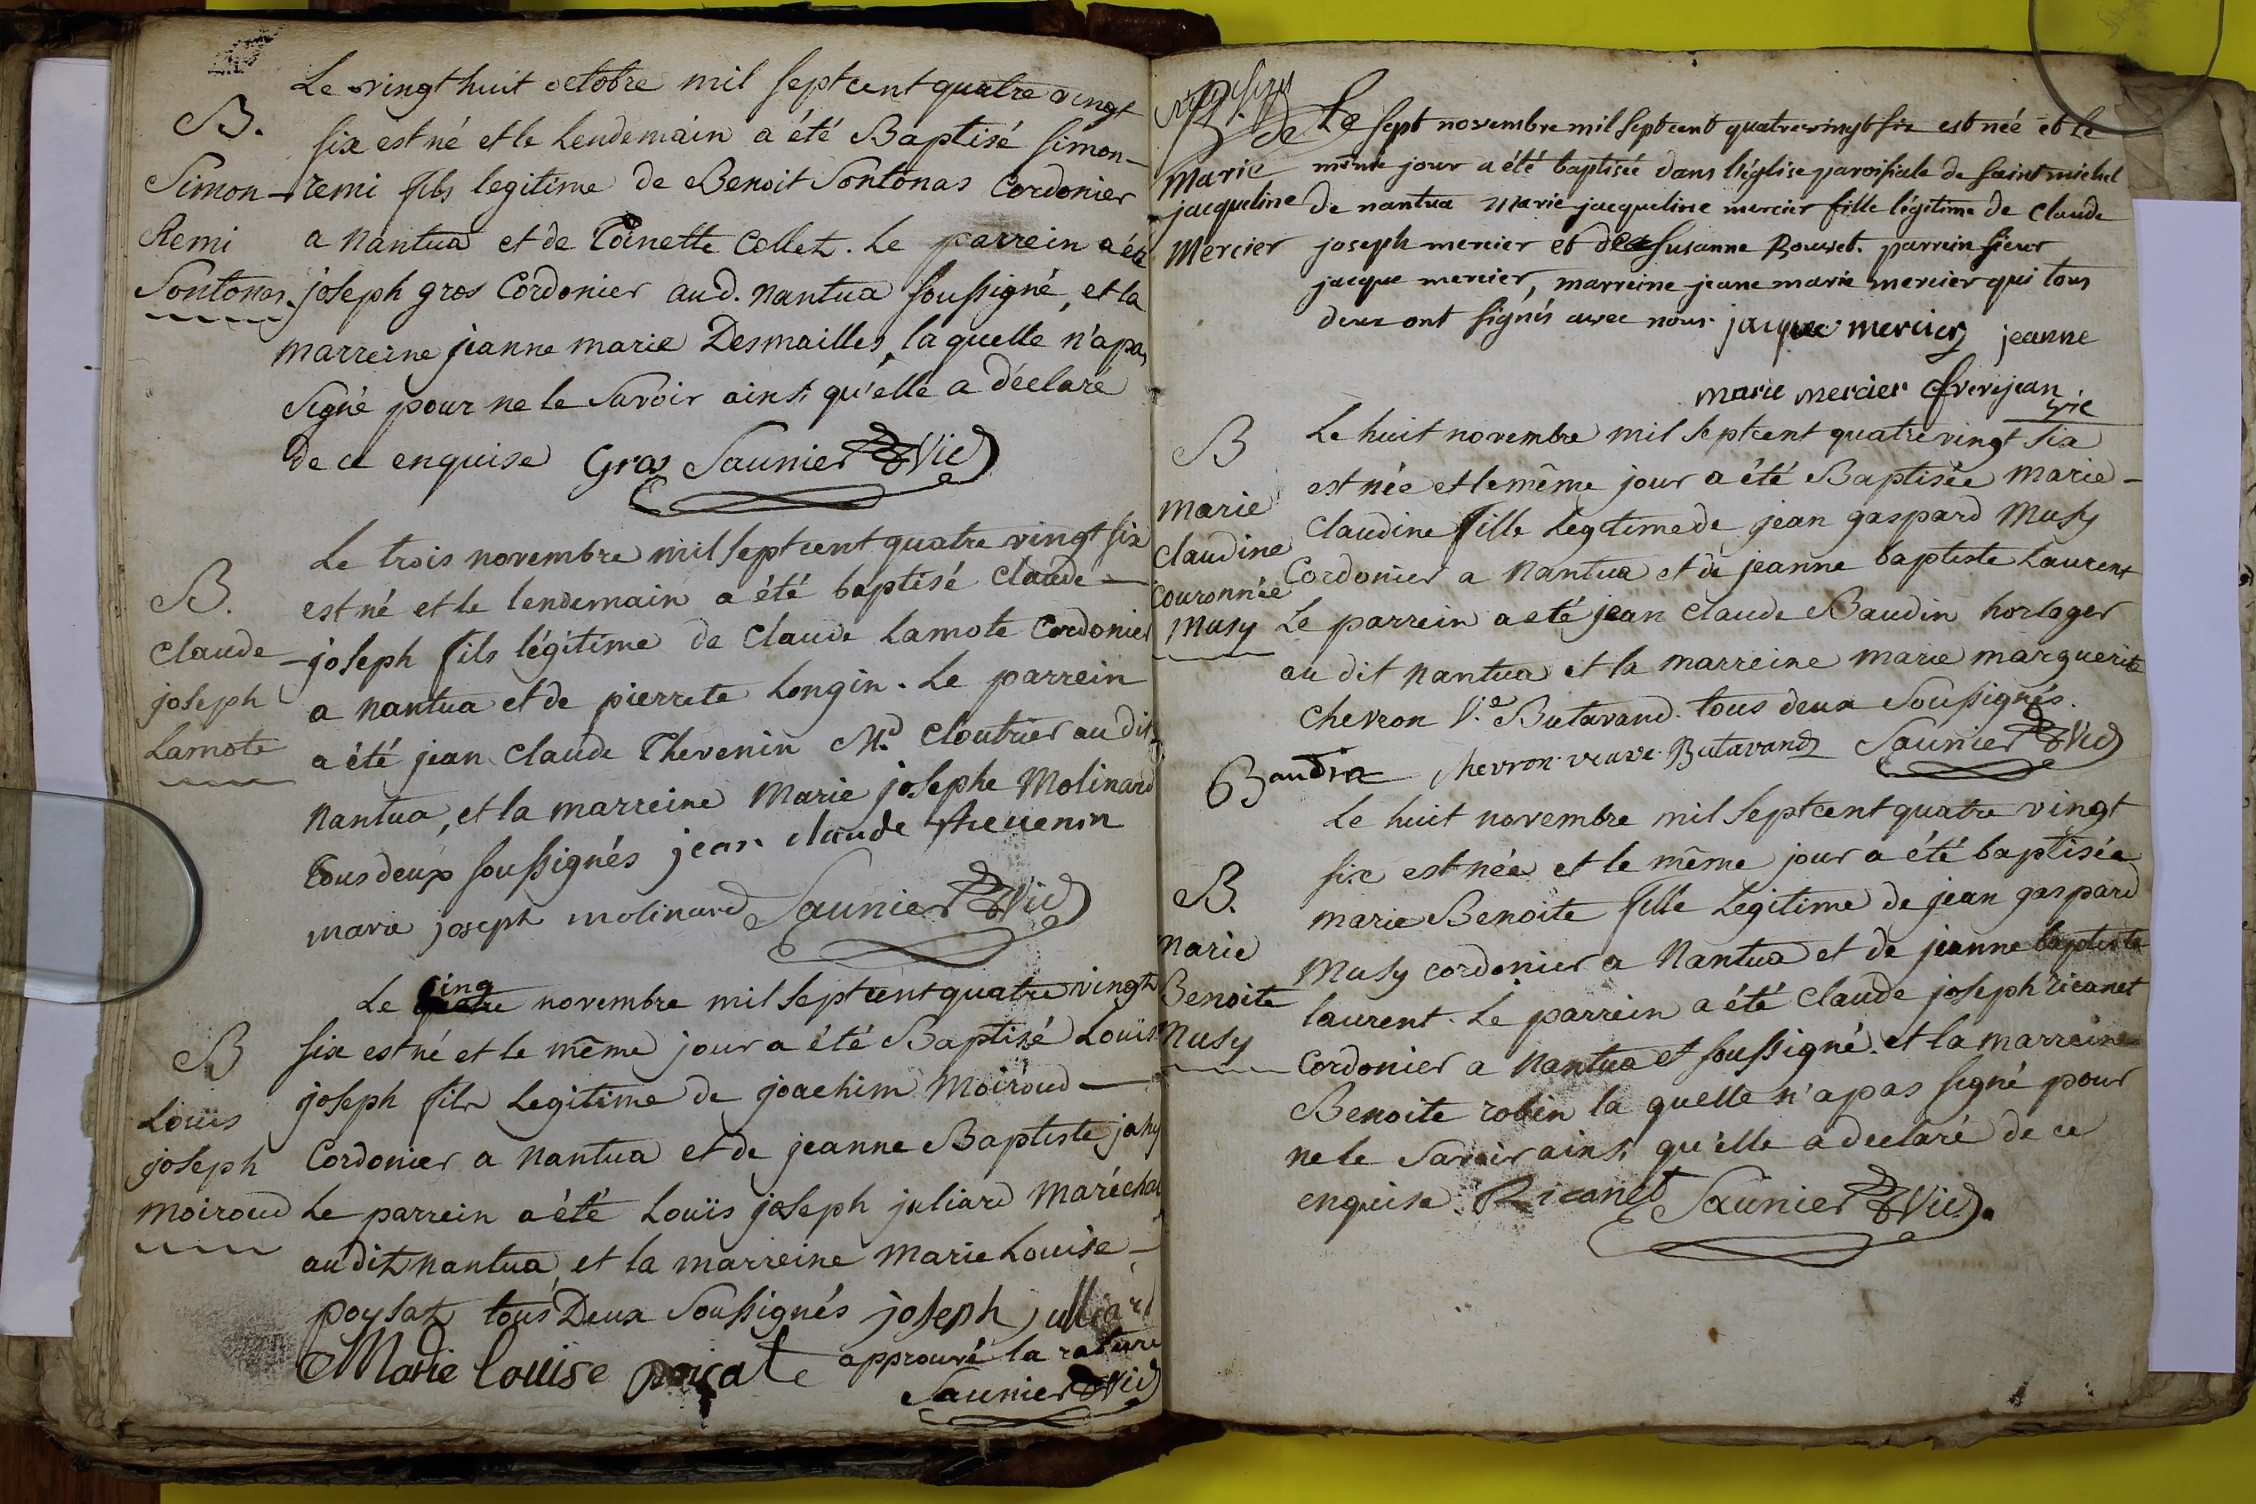 B.
Simon
Remi
Sontonas.
Le vingt huit octobre mil sept cent quatre vingt
six est né et le lendemain a été Baptisé simon-
remi fils legitime de Benoit Sontonas Cordonier
a nantua et de Toinette Collet. Le parrein a été
joseph gros Cordonier aud. nantua soussigné, et la
marreine jeanne marie Desmailles, la quelle n'a pas
signé pour ne le savoir ainsi qu'elle a déclaré
de ce enquise Gros Saunier Vic
B.
claude
joseph
Lamote
Le trois novembre mil sept cent quatre vingt six
est né et le lendemain a été baptisé claude
joseph fils légitime de claude Lamote Cordonier
a nantua et de pierrete Longin. Le parrein
a été jean claude Thevenin Md. cloutrier au dit
nantua, et la marreine Marie josephe Molinard
tous deux soussignés jean claude thevenin
marie joseph molinard Saunier Vic
B
Louis
joseph
moiroud
Le cinq quatre novembre mil sept cent quatre vingt
six est né et le même jour a été Baptisé Louis
joseph fils Legitime de joachim Moiroud
Cordonier a nantua et de jeanne Baptiste jahy
Le parrein a été Louïs joseph juliard Maréchal
au dit nantua, et la marreine marie Louise
poysat tous Deux soussignés joseph julliard
Marie louise poisate approuvé la rature
Saunier Vic
B. de
Marie
jacqueline
Mercier
Le sept novembre mil sept cent quatrevingt six est née et le
même jour a été baptisée dans l'église paroissiale de saint michel
de nantua marie jacqueline mercier fille légitime de claude
joseph mercier et de susanne Rousset. parrein sieur
jacque mercier, marreine jeane marie mercier qui tous
deux ont signés avec nous. jacque mercier jeanne
marie mercier frerejean
vic
B
marie
claudine
couronnée
musy
Le huit novembre mil sept cent quatre vingt six
est née et le même jour a été Baptisée marie-
claudine fille Legitime de jean gaspard Musy
Cordonier a nantua et de jeanne baptiste Laurent
Le parrein a eté jean claude Baudin horloger
au dit nantua et la marreine marie marguerite
chevron Ve. Butavand. tous deux Soussignés.
Baudin chevron veuve Butavand Saunier Vic
B.
marie
Benoite
musy
Le huit novembre mil sept cent quatre vingt
six est née et le même jour a été baptisée
marie Benoite fille Legitime de jean gaspard
musy cordonier a nantua et de jeanne baptiste
laurent. Le parrein a été claude joseph ricanet
Cordonier a nantua et soussigné. et la marreine
Benoite robin la quelle n'a pas signé pour
ne le savoir ainsi qu'elle a declaré de ce
enquise. Ricanet Saunier Vic.